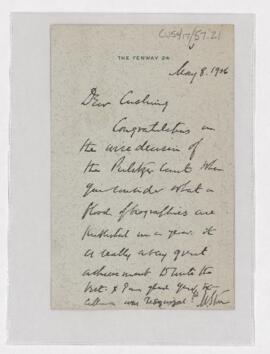 CUS417/57.21
THE FENWAY 24
May 8. 1926
Dear Cushing
Congratulations on
the wise decision of
the Pulitzer Court. When
you consider what a
flood of biographies are
published in a year. it
is really a very great
achievement to write the
best. & I am glad your
was recognized.